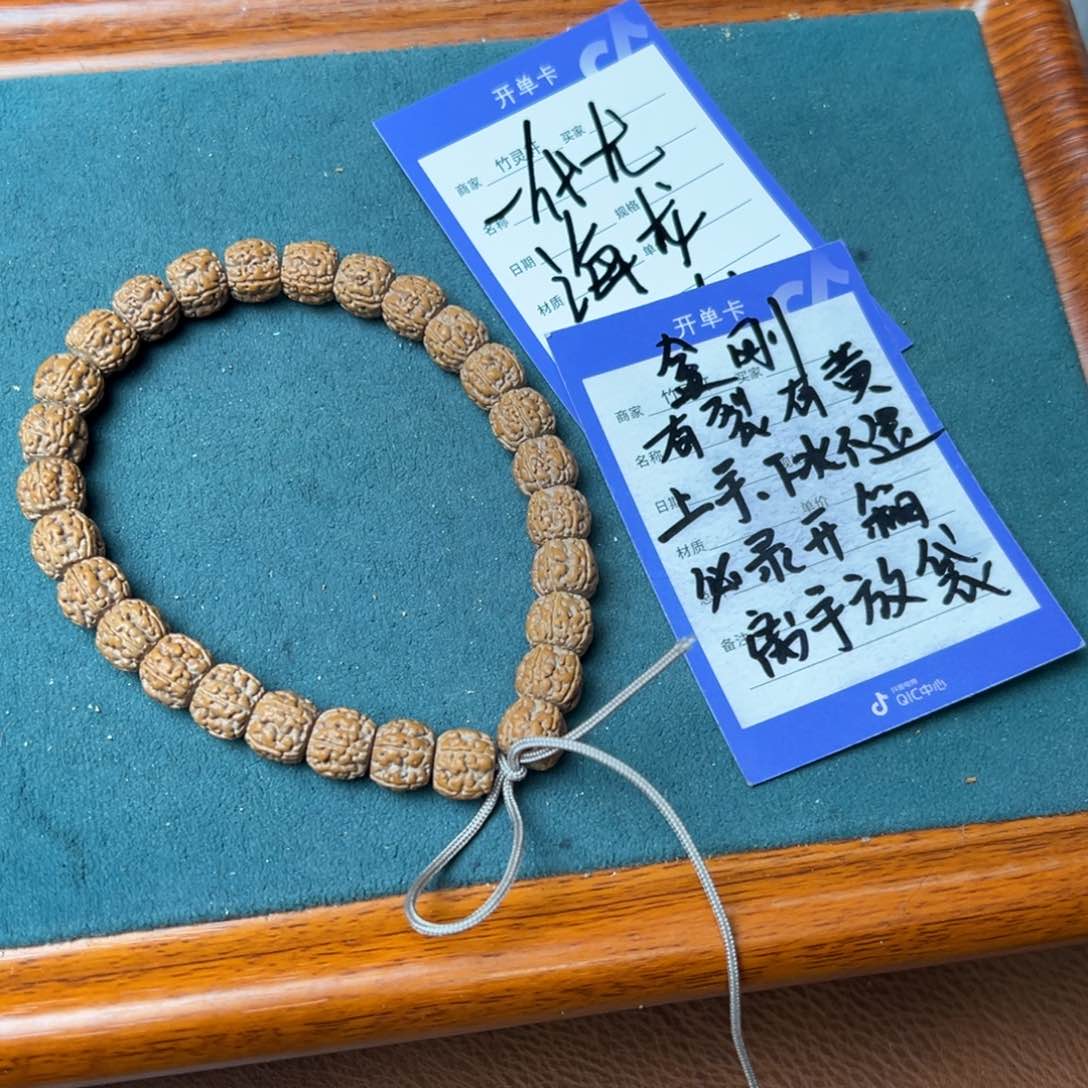 开单卡
商家 竹灵轩 买家
名称 规格
日期 单
材质
一代尤
海龙
开单卡
商家 竹 买家
名称
日期 单价
材质
备注
金刚
有裂有黄
上手、下水不退
必录开箱
离手放袋
抖音电商
QIC中心